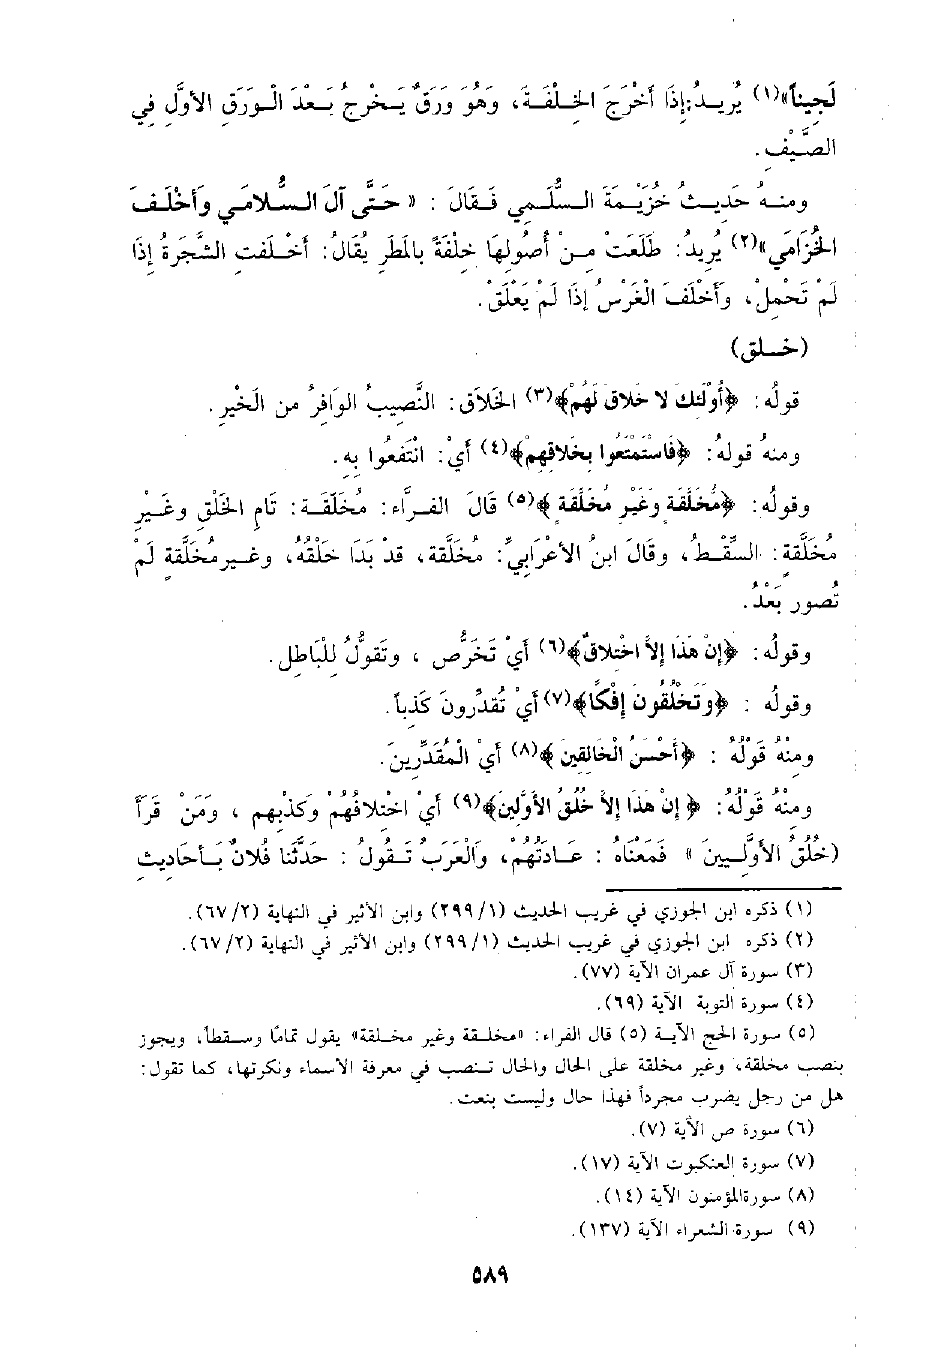 لَجيناً»(١) يُريدُ:إذَا أَخْرَجَ الخِلْفَةَ، وَهُوَ وَرَقٌ يَخْرجُ بَعْدَ الوَرَقِ الأوَّلِ فِي
الصَّيْفِ.
ومنهُ حَديثُ خُزَيْمَةَ السُّلَمِي فَقالَ : « حَتَّى آلَ السُّلامَي وأَخْلَفَ
الخُزَامَي»(٢) يُرِيدُ: طَلَعَتْ مِنْ أصُولِهَا خِلْفَةٌ بالمَطَرِ يُقَالُ: أخْلَفتِ الشَّجَرةُ إذَا
لَمْ تَحْمِلْ، وَأَخْلَفَ الْغَرْسُ إذَا لَمْ يَعْلَقْ.
(خلق)
قولُه: ﴿أُوْلَئِكَ لا خَلاقَ لَهُمْ﴾(٣) الخَلاَق: النَّصِيبُ الوَافِرُ من الخَيْرِ.
ومنهُ قولهُ: ﴿فَاسْتَمْتَعُوا بِخَلاقِهِمْ﴾(٤) أيْ: انْتَفَعُوا بِهِ.
وقولُه: ﴿مُخَلَّقَةٍ وَغَيْرِ مُخَلَّقَةٍ ﴾(٥) قَالَ الفرَّاء: مُخَلَّقَة: تَام الخَلْقِ وغَيْرِ
مُخَلَّقة: السِّقْط، وقَالَ ابنُ الأعْرَابيِّ: مُخَلَّقة، قدْ بَدَا خَلْقُهُ، وغيرمُخَلَّقةٍ لَمْ
تُصور بَعْدُ.
وقولُه: ﴿إنْ هَذَا إلاَّ اخْتِلاقٌ﴾(٦) أيْ تَخَرُّص ، وتَقوُّلُ لِلْبَاطِلِ.
وقولُه : ﴿وَتَخْلُقُونَ إِفْكًا﴾(٧) أيْ تُقدِّرونَ كَذِباً.
ومنْهُ قَوْلُهُ : ﴿أَحْسَنُ الْخَالِقِينَ ﴾(٨) أيْ الْمُقَدِّرِينَ.
ومنْهُ قَوْلُهُ: ﴿ إنْ هَذَا إلاَّ خُلُقُ الأوَّلِينَ﴾(٩) أيْ اخْتِلافُهُمْ وَكَذِبهِم ، وَمَنْ قَرَأَ
(خُلُقُ الأوَّلِينَ » فَمَعْنَاهُ : عَادَتُهُمْ، والْعَرَبُ تَقُولُ : حَدَّثَنا فُلانٌ بَأحَاديثِ
(١) ذكره ابن الجوزي في غريب الحديث (٢٩٩/١) وابن الأثير في النهاية (٦٧/٢).
(٢) ذكره ابن الجوزي في غريب الحديث (٢٩٩/١) وابن الأثير في النهاية (٦٧/٢).
(٣) سورة آل عمران الآية (٧٧).
(٤) سورة التوبة الآية (٦٩).
(٥) سورة الحج الآية (٥) قال الفراء: «مخلقة وغير مخلقة» يقول تمامًا وسقطاً، ويجوز
بنصب مخلقة، وغير مخلقة على الحال والحال تنصب في معرفة الأسماء ونكرتها، كما تقول:
هل من رجل يضرب مجرداً فهذا حال وليست بنعت.
(٦) سورة ص الآية (٧).
(٧) سورة العنكبوت الآية (١٧).
(٨) سورةالمؤمنون الآية (١٤).
(٩) سورة الشعراء الآية (١٣٧).
٥٨٩